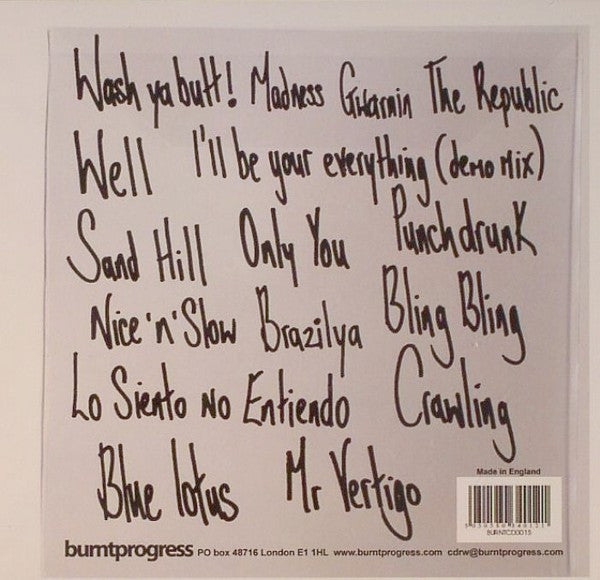 Wash ya butt! Madness Gwarnin The Republic
Well I'll be your everything (demo mix)
Sand Hill Only You Punchdrunk
Nice 'n' Slow Brazilya Bling Bling
Lo Siento No Entiendo Crawling
Blue lotus Mr Vertigo
Made in England
BURNTCD0015
burntprogress PO box 48716 London E1 1HL www.burntprogress.com cdrw@burntprogress.com